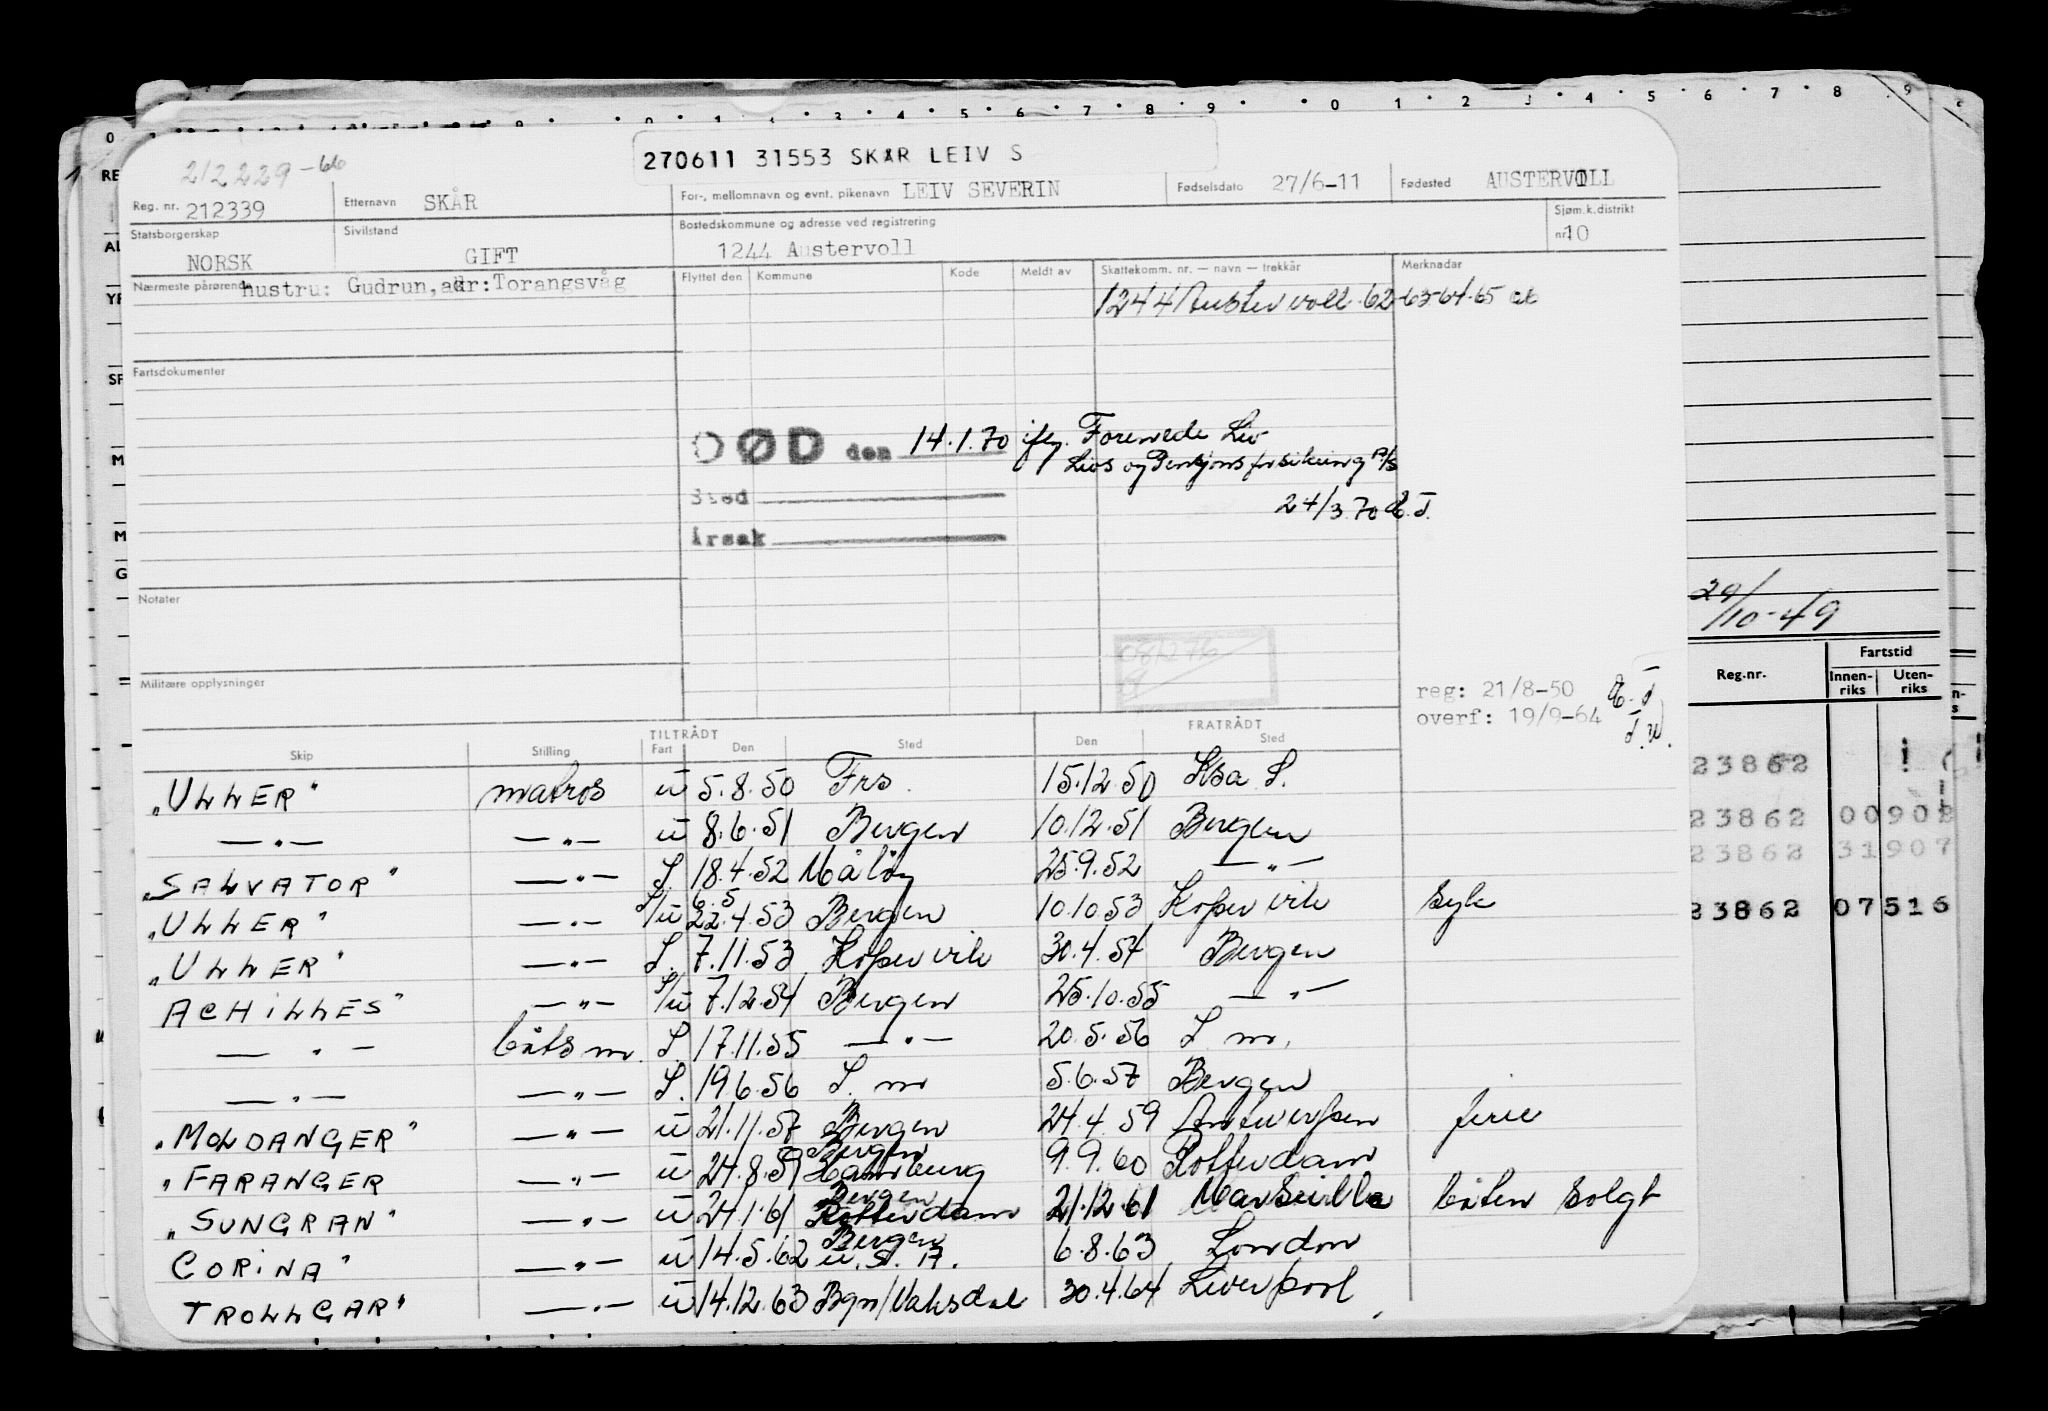 0 1 2 3 4 5 6 7 8 9 0 1 2 3 4 5 6 7 8 9
212229-66
270611 31553 SKÅR LEIV S
Reg. nr. 212339 Etternavn SKÅR For-, mellomnavn og evnt. pikenavn LEIV SEVERIN Fødselsdato 27/6-11 Fødested AUSTERVOLL
Statsborgerskap NORSK Sivilstand GIFT Bostedskommune og adresse ved registrering 1244 Austervoll Sjøm.k.distrikt nr. 10
Nærmeste pårørende hustru: Gudrun, adr: Torangsvåg Flyttet den Kommune Kode Meldt av Skattekomm. nr. — navn — trekkår Merknader
1244 Austervoll. 62-63-64-65
Fartsdokumenter
DØD den 14.1.70 ifly. Forenede Liv
Livs og Pensjonsforsikring A/S
Sted
24/3.70 E.T.
Årsak
Notater
29/10-49
Militære opplysninger
Reg.nr. Fartstid
Innen-riks Uten-riks
reg: 21/8-50 E.T
overf: 19/9-64 T.U.
TILTRÅDT FRATRÅDT
Skip Stilling Fart Den Sted Den Sted
"ULLER" matros u 5.8.50 Frs. 15.12.50 Ksa S.
23862
—"— —"— u 8.6.51 Bergen 10.12.51 Bergen
23862 00902
"SALVATOR" —"— S 18.4.52 Måløy 25.9.52 —"—
23862 31907
"ULLER" —"— S/u 6.5 22.4.53 Bergen 10.10.53 Kopervik syk
23862 07516
"ULLER" —"— S. 7.11.53 Kopervik 30.4.54 Bergen
ACHILLES" —"— S/u 7.12.54 Bergen 25.10.55 —"—
—"— båtsm. S. 17.11.55 —"— 20.5.56 S. m.
—"— —"— S. 19.6.56 S. m 5.6.57 Bergen
"MOLDANGER" —"— u 21.11.57 Bergen 24.4.59 Antwerpen ferie
"FARANGER —"— u 24.8.59 Bergen Hamburg 9.9.60 Rotterdam
"SUNGRAN" —"— u 24.1.61 Bergen Rotterdam 21.12.61 Marseille båten solgt
CORINA" —"— u 14.5.62 Bergen U.S.A. 6.8.63 London
TROLLGAR" —"— u 14.12.63 Bgn/Vaksdal 30.4.64 Liverpool